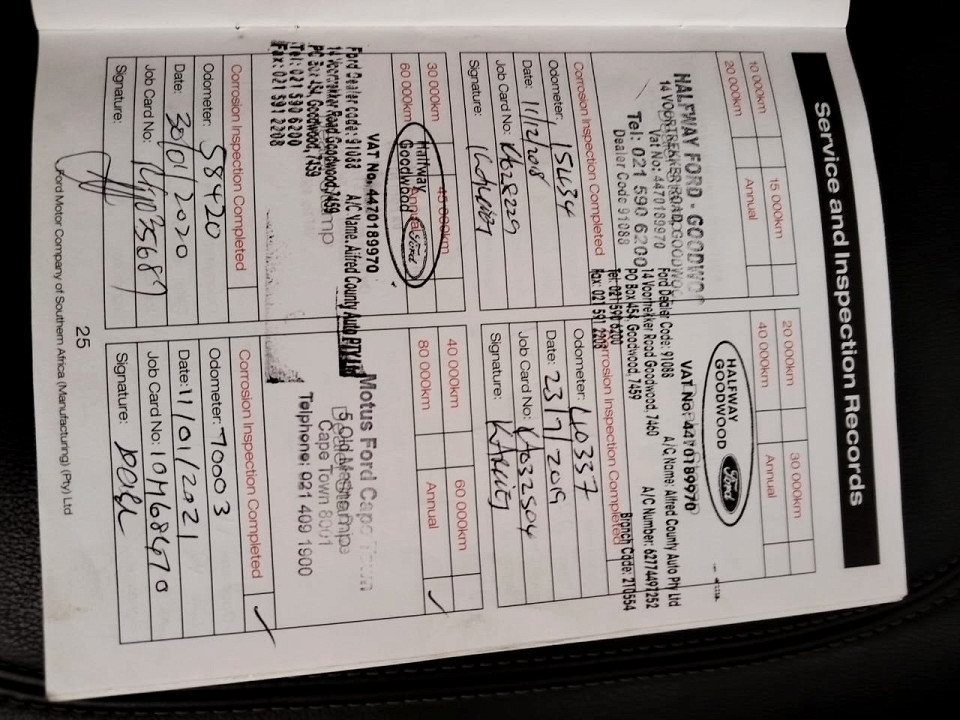 Service and Inspection Records
10 000km
15 000km
20 000km
Annual
HALFWAY FORD - GOODWO
14 VORTREKKER ROAD, GOODWO
Vat No: 4470189970
Tel: 021 590 6200
Dealer Code 91088
Corrosion Inspection Completed
Odometer: 15434
Date: 11/12/2018
Job Card No:
Signature:
20 000km
30 000km
40 000km
Annual
HALFWAY
GOODWOOD
Ford
VAT No: 4470189970
A/C Name: Alfred County Auto Pty Ltd
Ford Dealer Code: 91088
A/C Number: 62774491252
14 Voortrekker Road Goodwood, 7460
PO Box 454, Goodwood, 7459
Branch Code: 210554
Tel: 021 590 6200
Fax: 021 591 2208
Corrosion Inspection Completed
Odometer: 40337
Date: 23/7/2019
Job Card No:
Signature:
30 000km
45 000km
60 000km
Annual
Halfway
Goodwood
Ford
VAT No. 4470189970
Ford Dealer code: 91088
A/C Name. Alfred County Auto PTY Ltd
14 Voortrekker Road Goodwood, 7459
PO Box 454, Goodwood, 7459
Tel: 021 590 6200
Fax: 021 591 2208
Corrosion Inspection Completed
Odometer: 58420
Date: 30/01/2020
Job Card No:
Signature:
40 000km
60 000km
80 000km
Annual
Motus Ford Cape Town
Cape Town 8001
Telphone: 021 409 1900
Corrosion Inspection Completed
Odometer: 70003
Date: 11/01/2021
Job Card No:
Signature:
25
Ford Motor Company of Southern Africa (Manufacturing) (Pty) Ltd